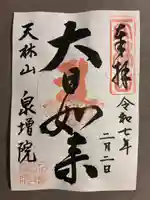 奉拝
令和七年
二月二日
大日如来
天林山
泉増院